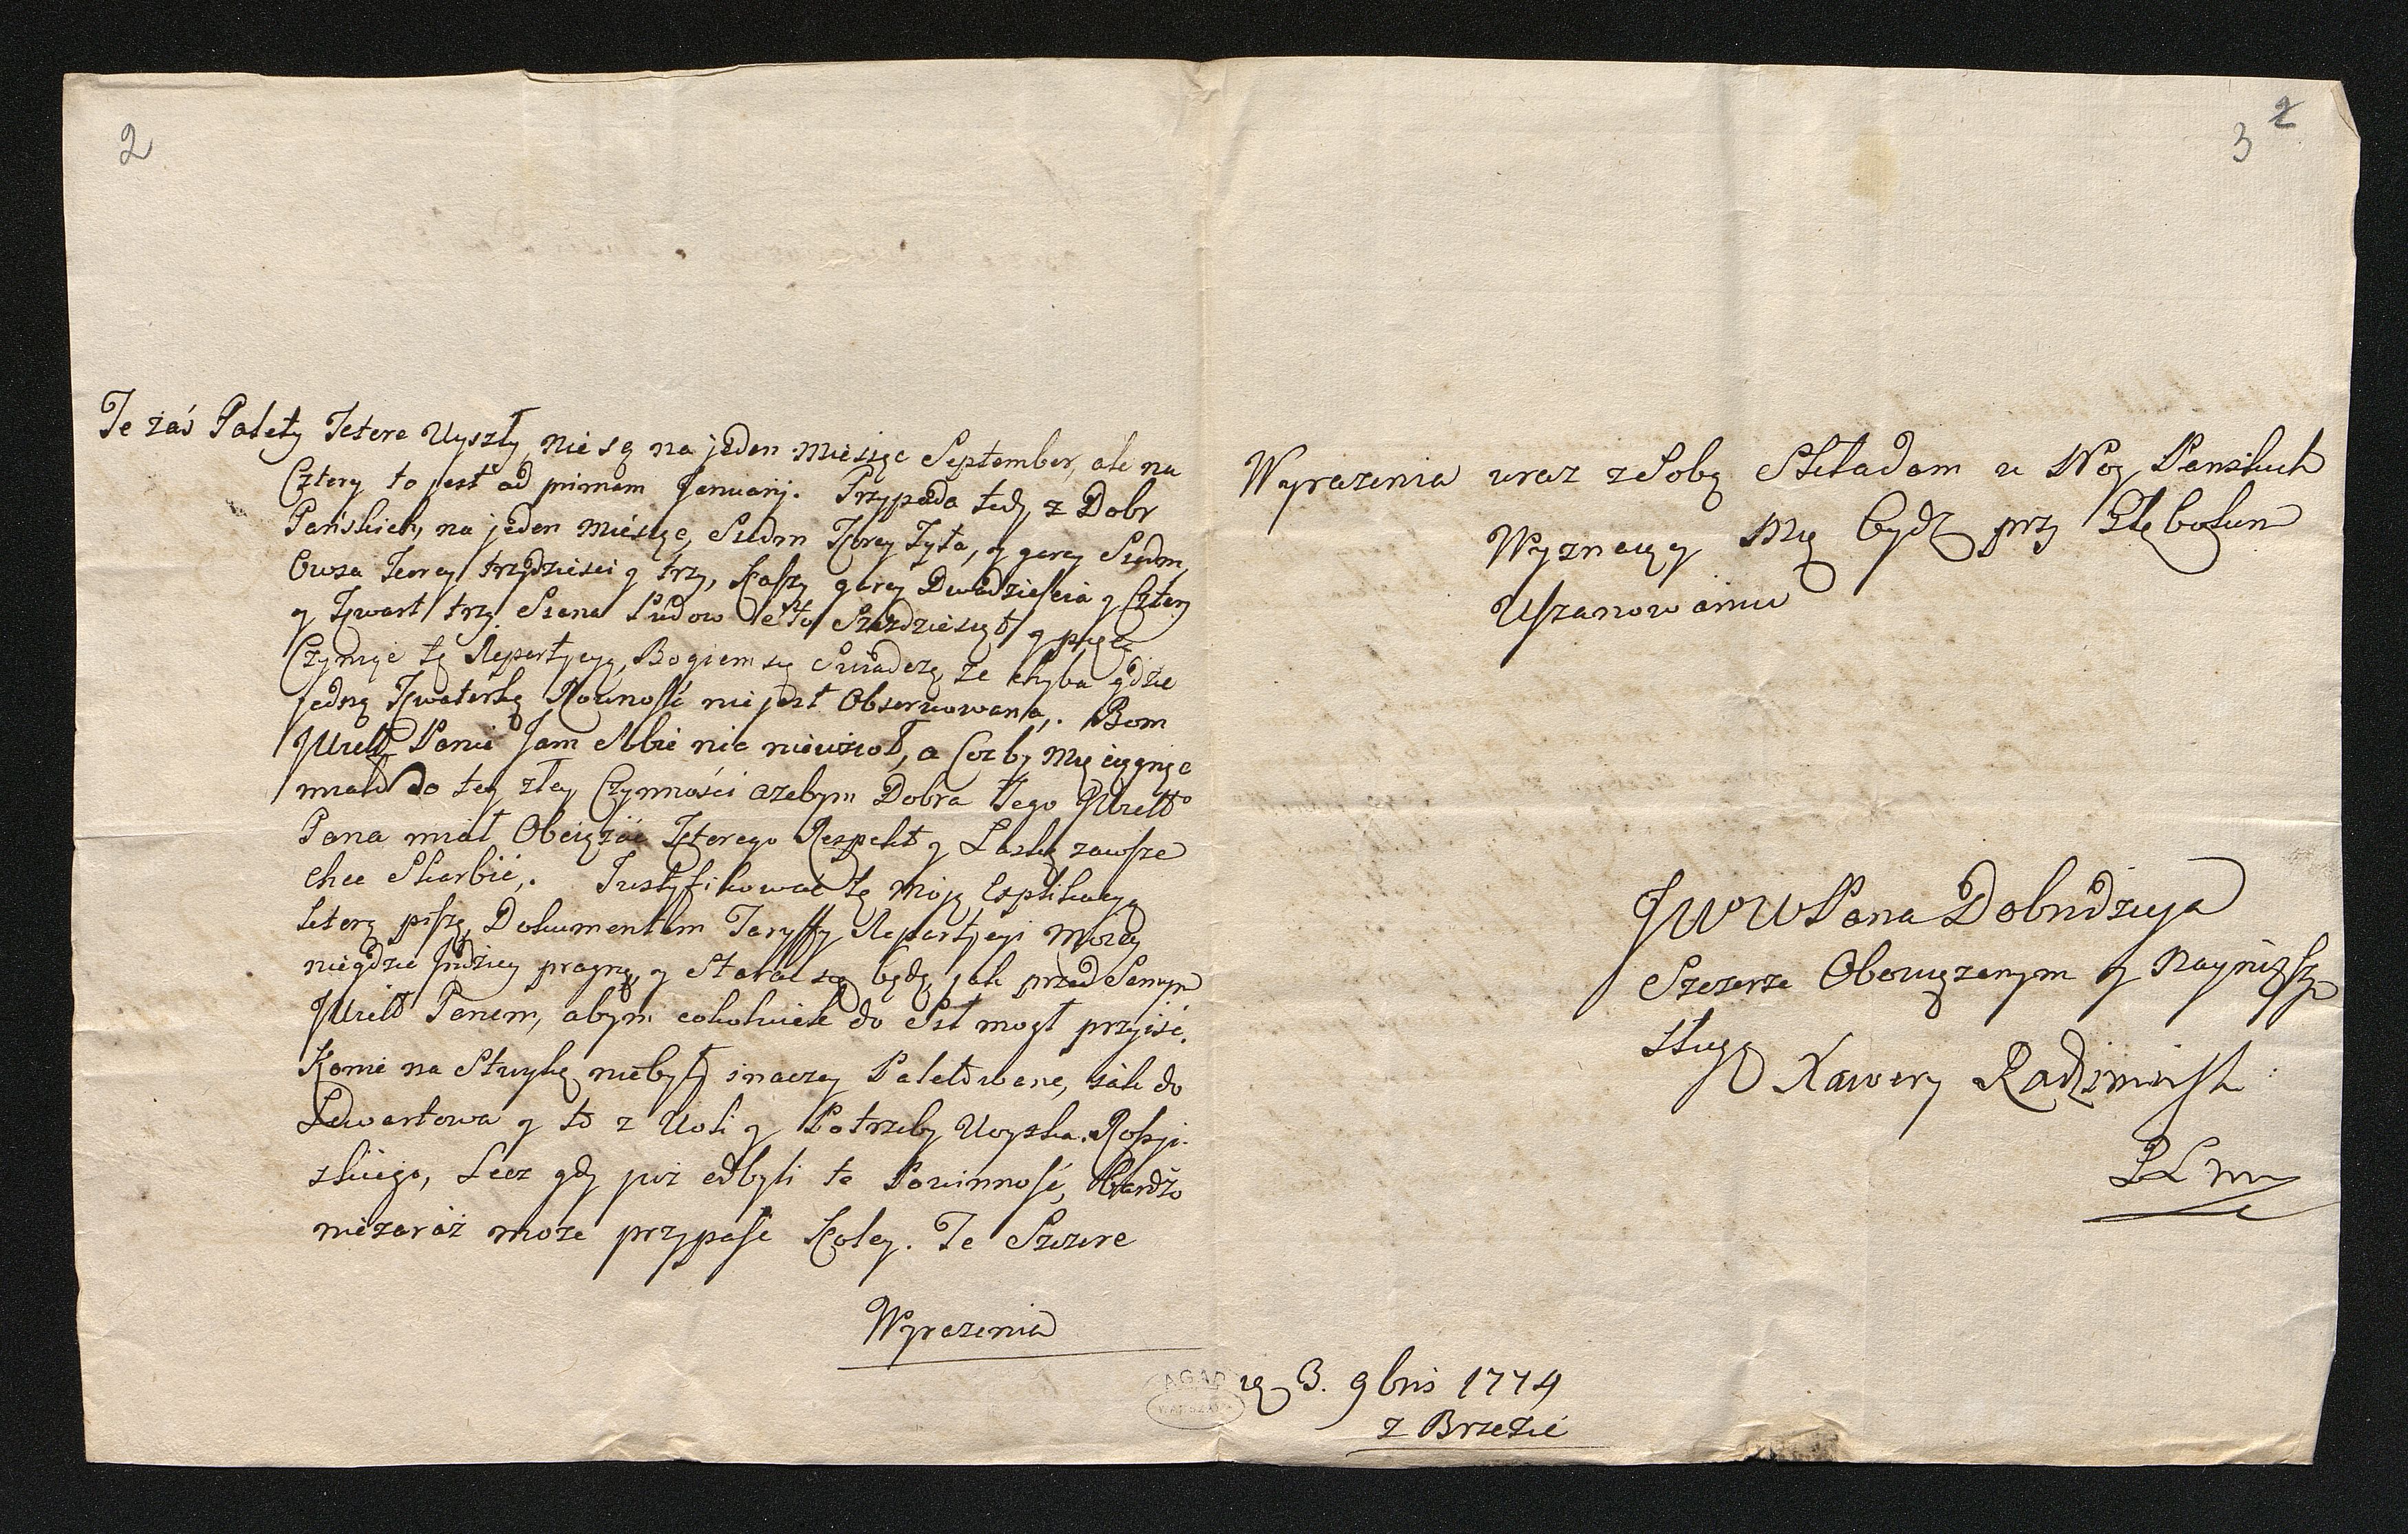 2
Te zaś Palety Ktore Uyszły, nie są na jeden Miesiąc September, ale na
Cztery to jest ad primam Januarij. Przypada tedy z Dobr
Pańskich, na jeden Miesiąc, Siedm Korcy Zyta, y garcy Siedm,
Owsa Korcy trzydziesci y trzy, Kaszy garcy Dwadziescia y Cztery
y Kwart trzy. Siana Pudow Sto Szezdziesiąt y pięć
Czyniąc tę Repartycyą, Bogiem się Swiadczę, ze chyba gdzie
jedną Kwaterką Rowność nie jest Obserwowana,. Bom
JWielki Panie Jam Sobie nic niewział, a Coz by Mię ciągnąc
miało do tey złey Czynności azebym Dobra tego JWielko
Pana miał Obciązać Ktorego Respekt y Łaskę zawsze
chce Skarbić,. Justyfikować tę moją Explikacyą
Ktorą piszę, Dokumentem Taryffy Repartycyi Moiey
niegdzie Indziey pragnę, y Starać się będę, jak przed Samym
JWielk Panem, abym cokolwiek do Est mogł przyiść.
Konie na Stuykę niebyły inaczey Paletowane, jak do
Lewartowa y to z Woli y Potrzeby Woyska Rossyi-
skiego, Lecz gdy już odbyli te Powinność, Bardzo
niezaraz moze przypaść Koley. Te Szczere
Wyrazenia
2
3
Wyrazenia wraz z Sobą Składam u Nog Panskich
Wyznaiąc Mię bydź przy Głębokim
Uszanowaniu
JWWPana Dobrodzieja
Szczerze Obowiązanym y Nayniższym
Sługą
Xawery Radzimińsk
PLm
AGAD
WARSZAWA
3. 9bris 1774
z Brzezić